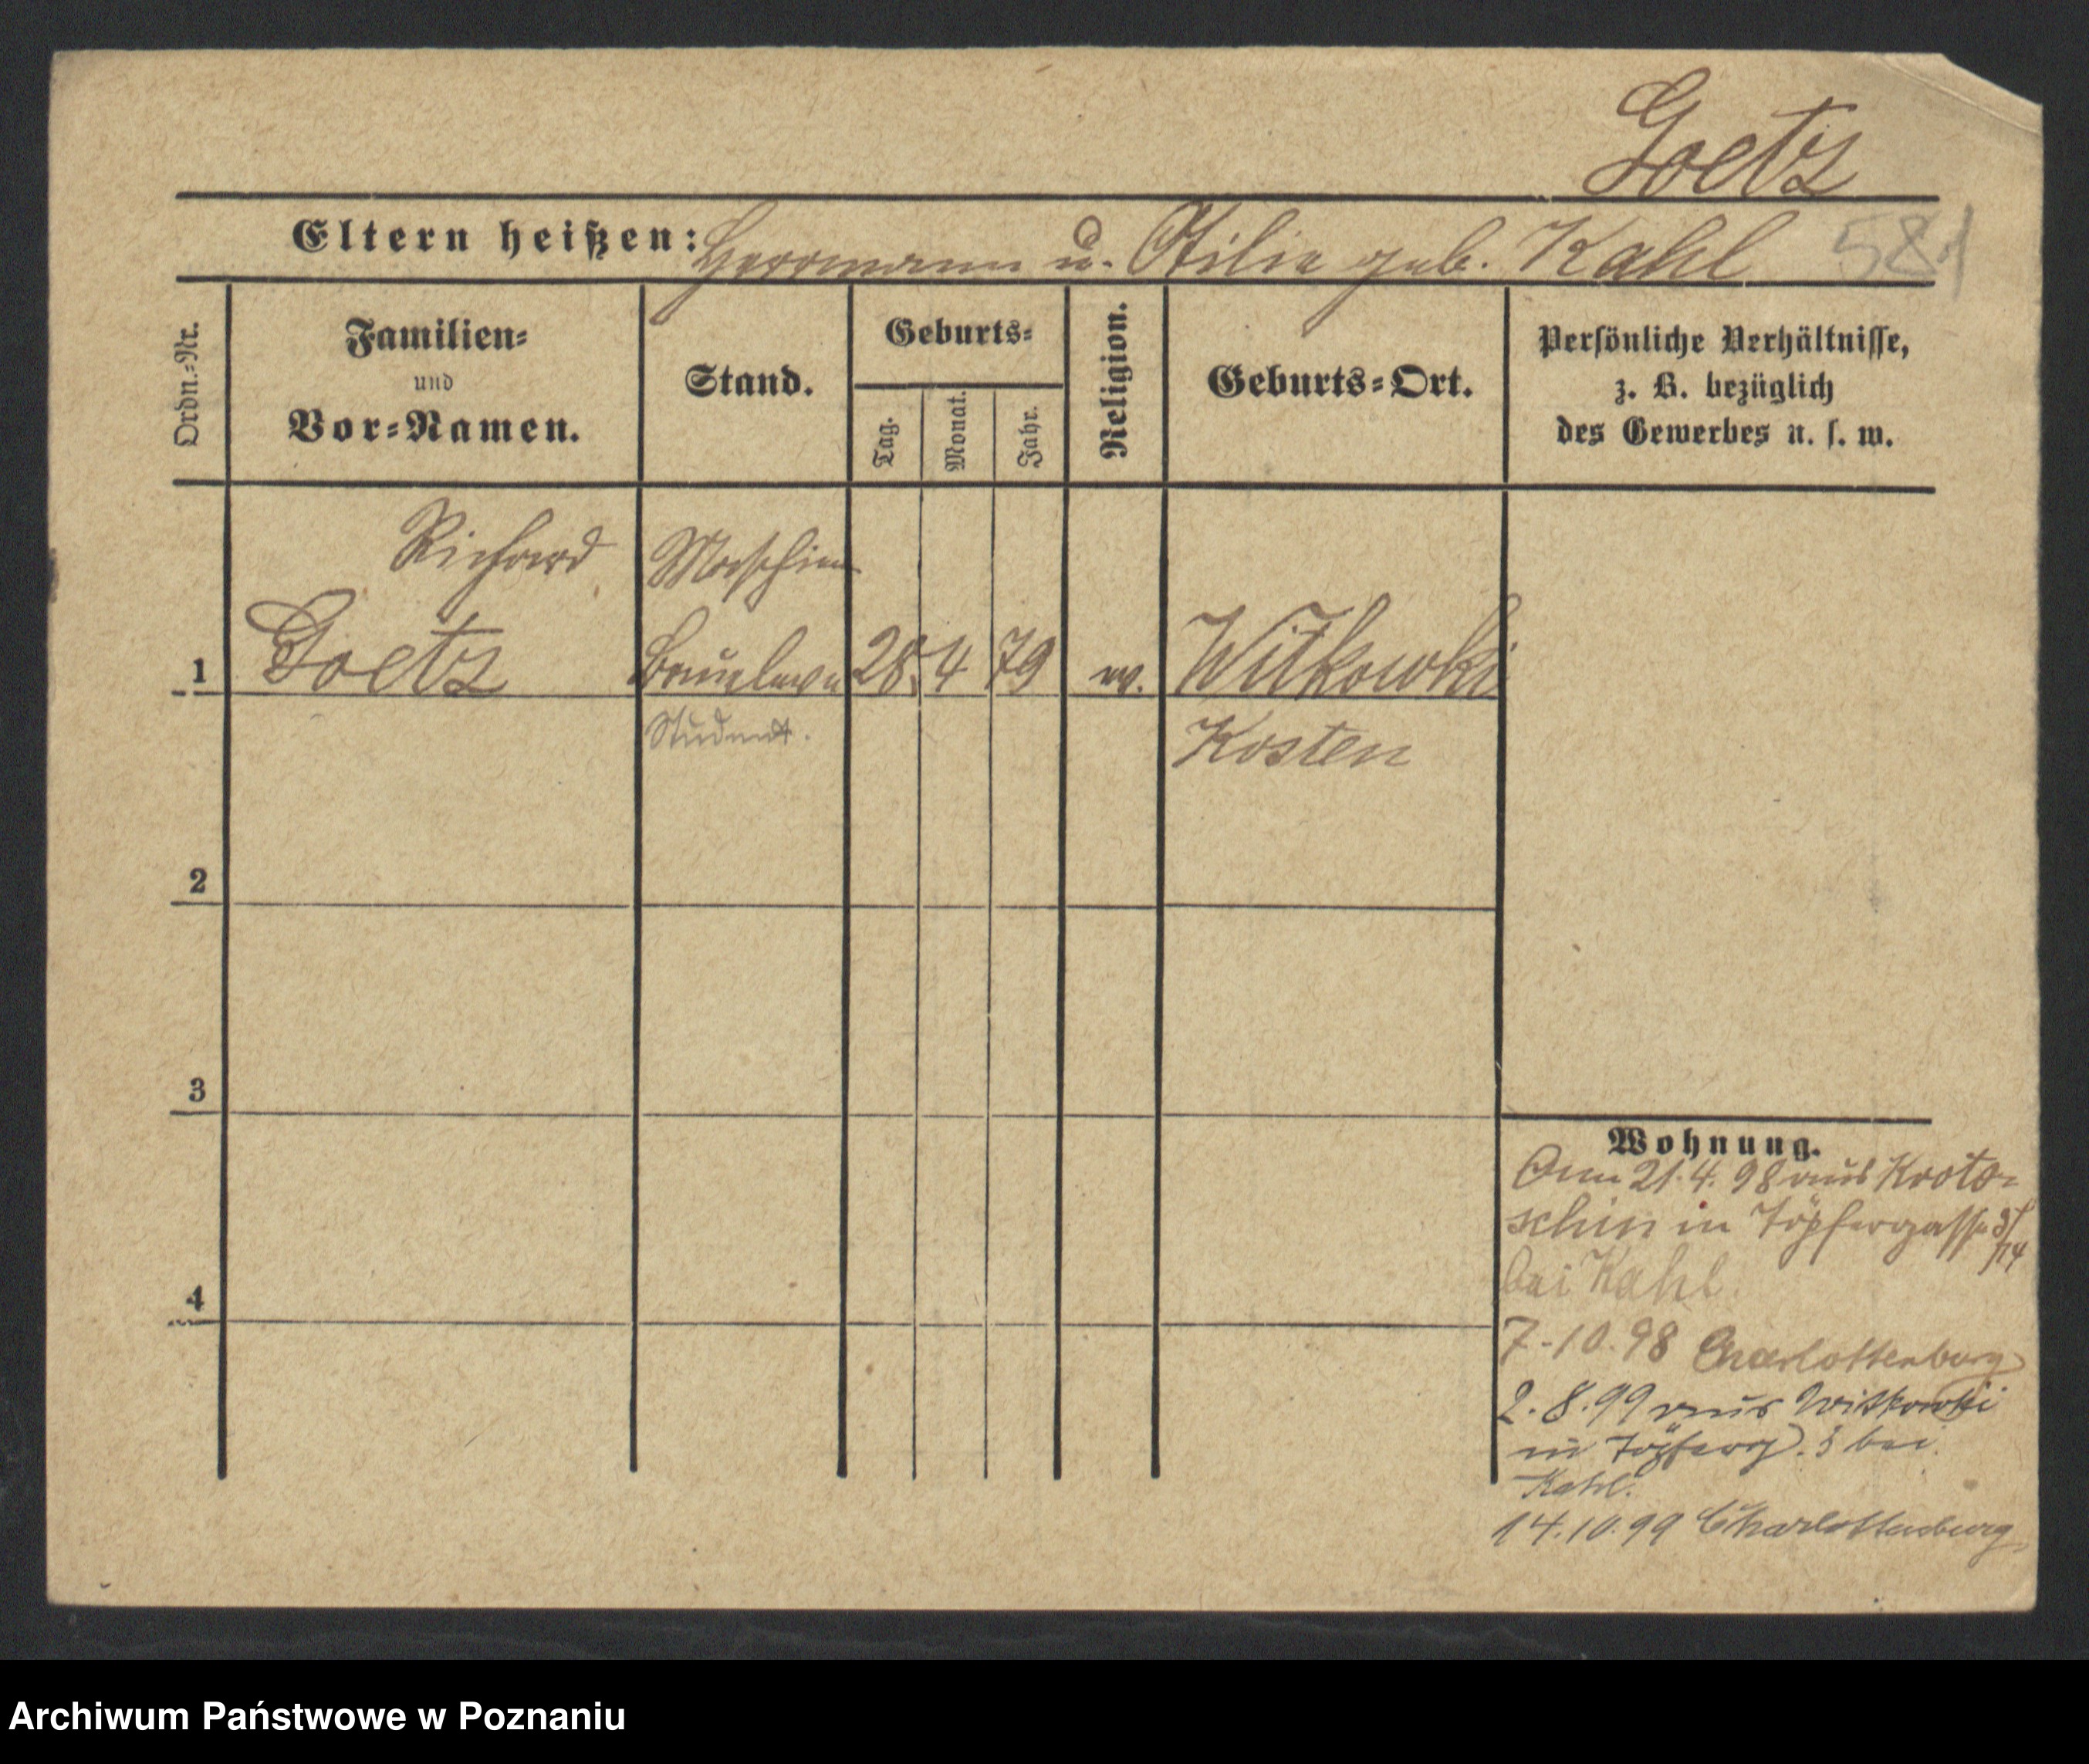 Goetz
Eltern heißen: Herrmann u. Otilie geb. Kahl 581
Ordn.-Nr.
Familien-
und
Vor-Namen.
Stand.
Geburts-
Tag.
Monat.
Jahr.
Religion.
Geburts-Ort.
Persönliche Verhältnisse,
z. B. bezüglich
des Gewerbes u. s. w.
Richard Maschin
1 Goetz 28. 4 79 ev. Witkowki
Student. Kosten
2
3
4
Wohnung.
21.4.98 aus Kroto-
schin in Töpfergasse 3/14
bei Kahl.
7.10.98 Charlottenburg
2.8.99 aus Witkowki
in Töpferg. 3 bei
Kahl.
14.10.99 Charlottenburg
Archiwum Państwowe w Poznaniu